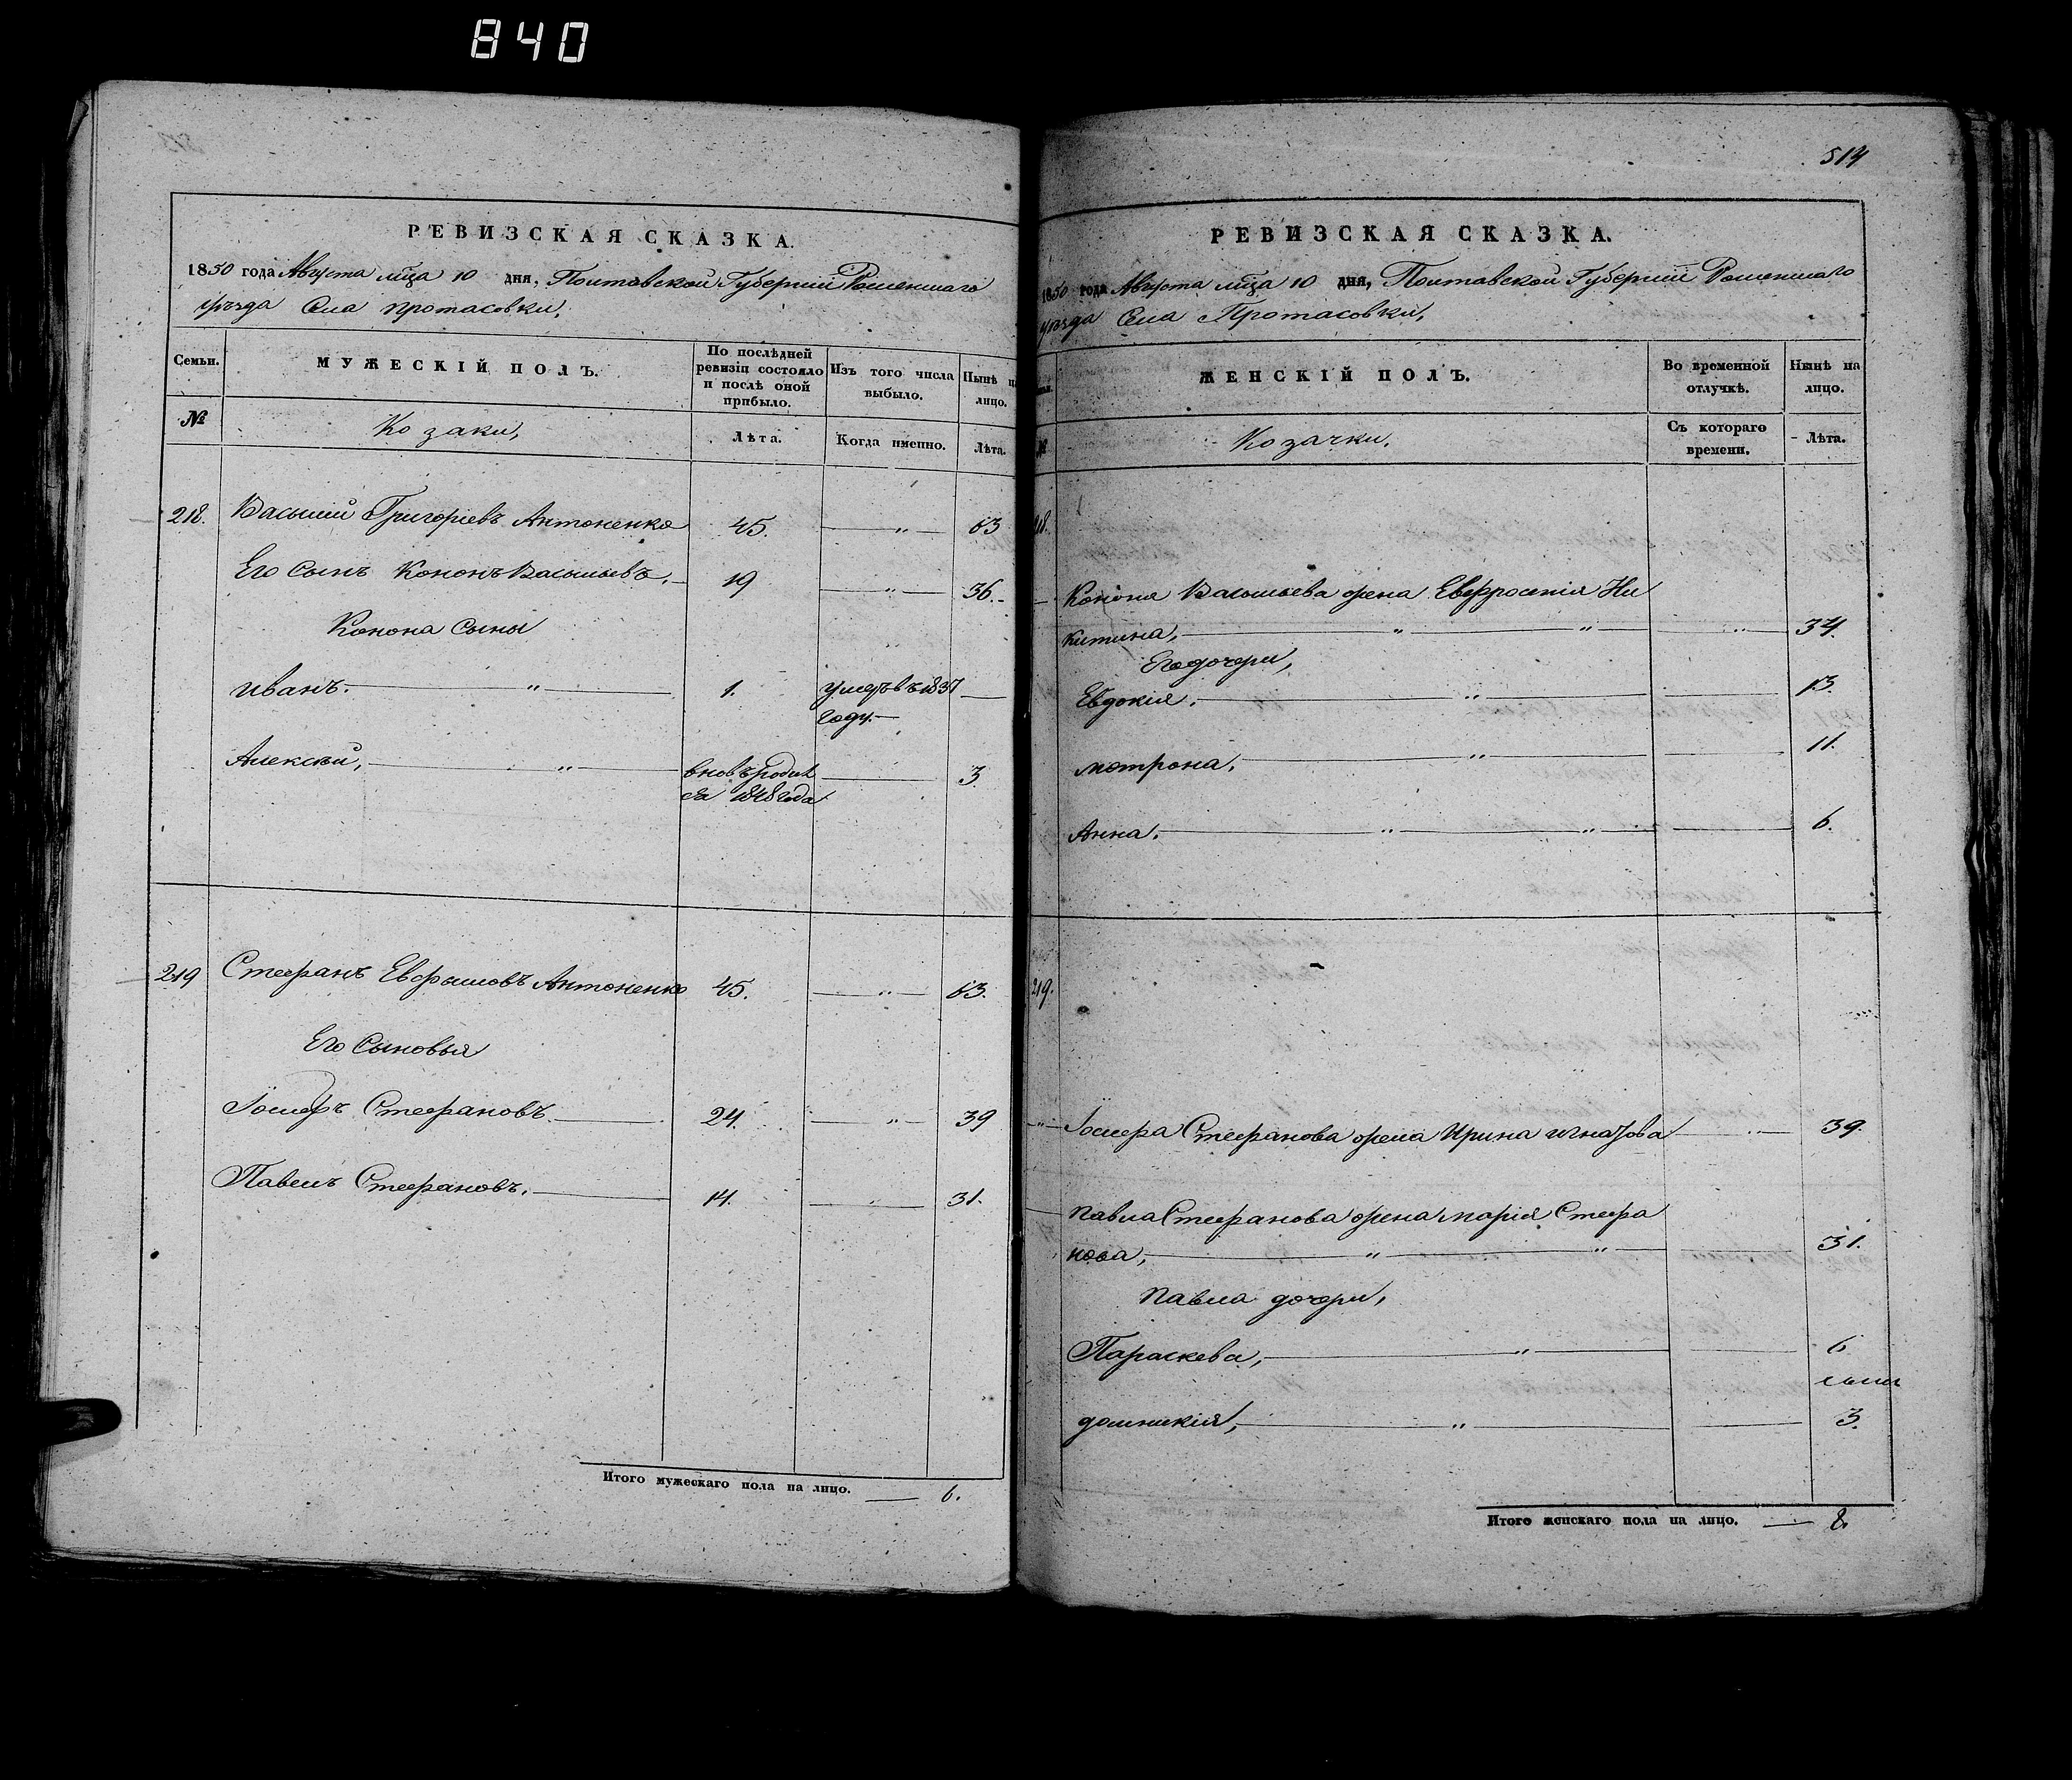 840
РЕВИЗСКАЯ СКАЗКА.
1850 года Августа мца 10 дня, Полтавской Губернии Роменшаго
уѣзда Села протасовки,
Семьи.
МУЖЕСКІЙ ПОЛЪ.
По послѣдней ревизіи состояло и послѣ оной прибыло.
Изъ того числа выбыло.
Нынѣ на лицо.
№
Козаки,
Лѣта.
Когда именно.
Лѣта.
218. Василий Григоріевъ Антоненко 45. 63
Его Сынъ Кононъ Васильевъ. 19 36.
Конона Сыны
иванъ. 1. умеръ въ 1837
году.
Алексѣй, вновь родил 3.
ся 1848 года
219 Стефанъ Евфимовъ Антоненко 45. 63.
Его Сыновья
Іосифъ Стефановъ. 24. 39
Павелъ Стефановъ. 14. 31.
Итого мужескаго пола на лицо. 6.
514
РЕВИЗСКАЯ СКАЗКА.
1850 года Августа мца 10 дня, Полтавской Губернии Роменшаго
уѣзда Села Протасовки,
ЖЕНСКІЙ ПОЛЪ.
Во временной отлучкѣ.
Нынѣ на лицо.
№
Козачки,
Съ котораго времени.
Лѣта.
218.
Конона Васильева жена Евфросенія Ни
китина, 34.
Его дочери,
Евдокія. 13.
мотрона, 11.
Анна. 6.
219.
Іосифа Стефанова жена Ирина игнатова 39.
павла Стефанова жена марія Стефа
нова, 31.
павла дочери,
Параскева, 6
домникія, 3.
Итого женскаго пола на лицо. 8.